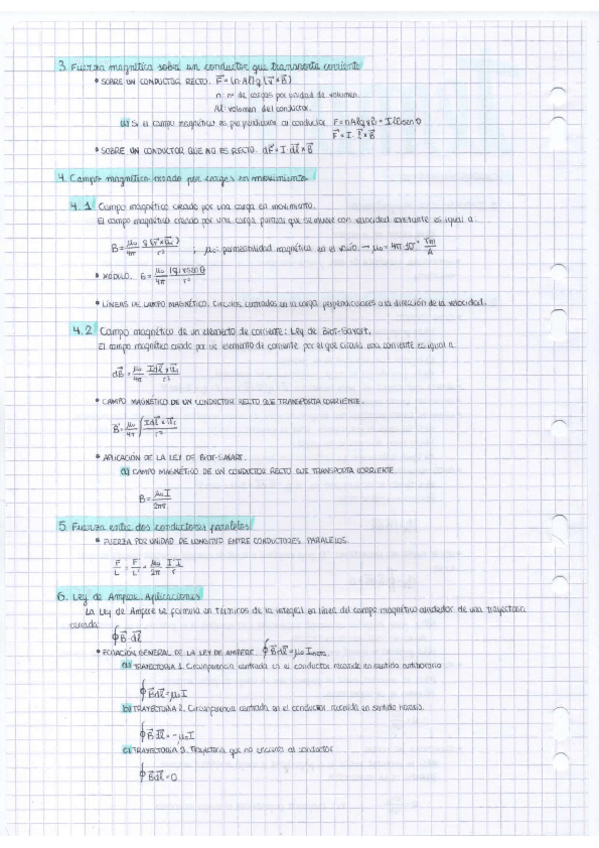 3. Fuerza magnética sobre un conductor que transporta corriente
• SOBRE UN CONDUCTOR RECTO. F⃗ = (n·Al) q (v⃗ × B⃗)
n: nº de cargas por unidad de volumen.
Al: volumen del conductor.
a) Si el campo magnético es perpendicular al conductor. F = nAlqvB = IlBsenθ
F⃗ = I · l⃗ × B⃗
• SOBRE UN CONDUCTOR QUE NO ES RECTO. dF⃗ = I · dl⃗ × B⃗
4. Campo magnético creado por cargas en movimiento
4.1 Campo magnético creado por una carga en movimiento.
El campo magnético creado por una carga puntual que se mueve con velocidad constante es igual a:
B = μ₀/4π q(v⃗ × u⃗r)/r² ; μ₀: permeabilidad magnética en el vacío → μ₀ = 4π 10⁻⁷ Tm/A
• MÓDULO. B = μ₀/4π |q| v senθ/r²
• LÍNEAS DE CAMPO MAGNÉTICO. Círculos centrados en la carga perpendiculares a la dirección de la velocidad.
4.2 Campo magnético de un elemento de corriente: Ley de Biot-Savart.
El campo magnético creado por un elemento de corriente por el que circula una corriente es igual a
dB⃗ = μ₀/4π Idl⃗ × u⃗r/r²
• CAMPO MAGNÉTICO DE UN CONDUCTOR RECTO QUE TRANSPORTA CORRIENTE.
B⃗ = μ₀/4π ∫ Idl⃗ × u⃗r/r²
• APLICACIÓN DE LA LEY DE BIOT-SAVART.
a) CAMPO MAGNÉTICO DE UN CONDUCTOR RECTO QUE TRANSPORTA CORRIENTE
B = μ₀I/2πr
5. Fuerza entre dos conductores paralelos
• FUERZA POR UNIDAD DE LONGITUD ENTRE CONDUCTORES PARALELOS.
F/L = F'/L' = μ₀/2π I·I'/r
6. Ley de Ampere. Aplicaciones
La Ley de Ampere se formula en términos de la integral en línea del campo magnético alrededor de una trayectoria
cerrada:
∮ B⃗ · dl⃗
• ECUACIÓN GENERAL DE LA LEY DE AMPERE. ∮ B⃗ · dl⃗ = μ₀ I
a) TRAYECTORIA 1. Circunferencia centrada en el conductor recorrida en sentido antihorario
∮ B⃗ dl⃗ = μ₀ I
b) TRAYECTORIA 2. Circunferencia centrada en el conductor recorrida en sentido horario.
∮ B⃗ · dl⃗ = −μ₀ I
c) TRAYECTORIA 3. Trayectoria que no encierra al conductor
∮ B⃗ dl⃗ = 0